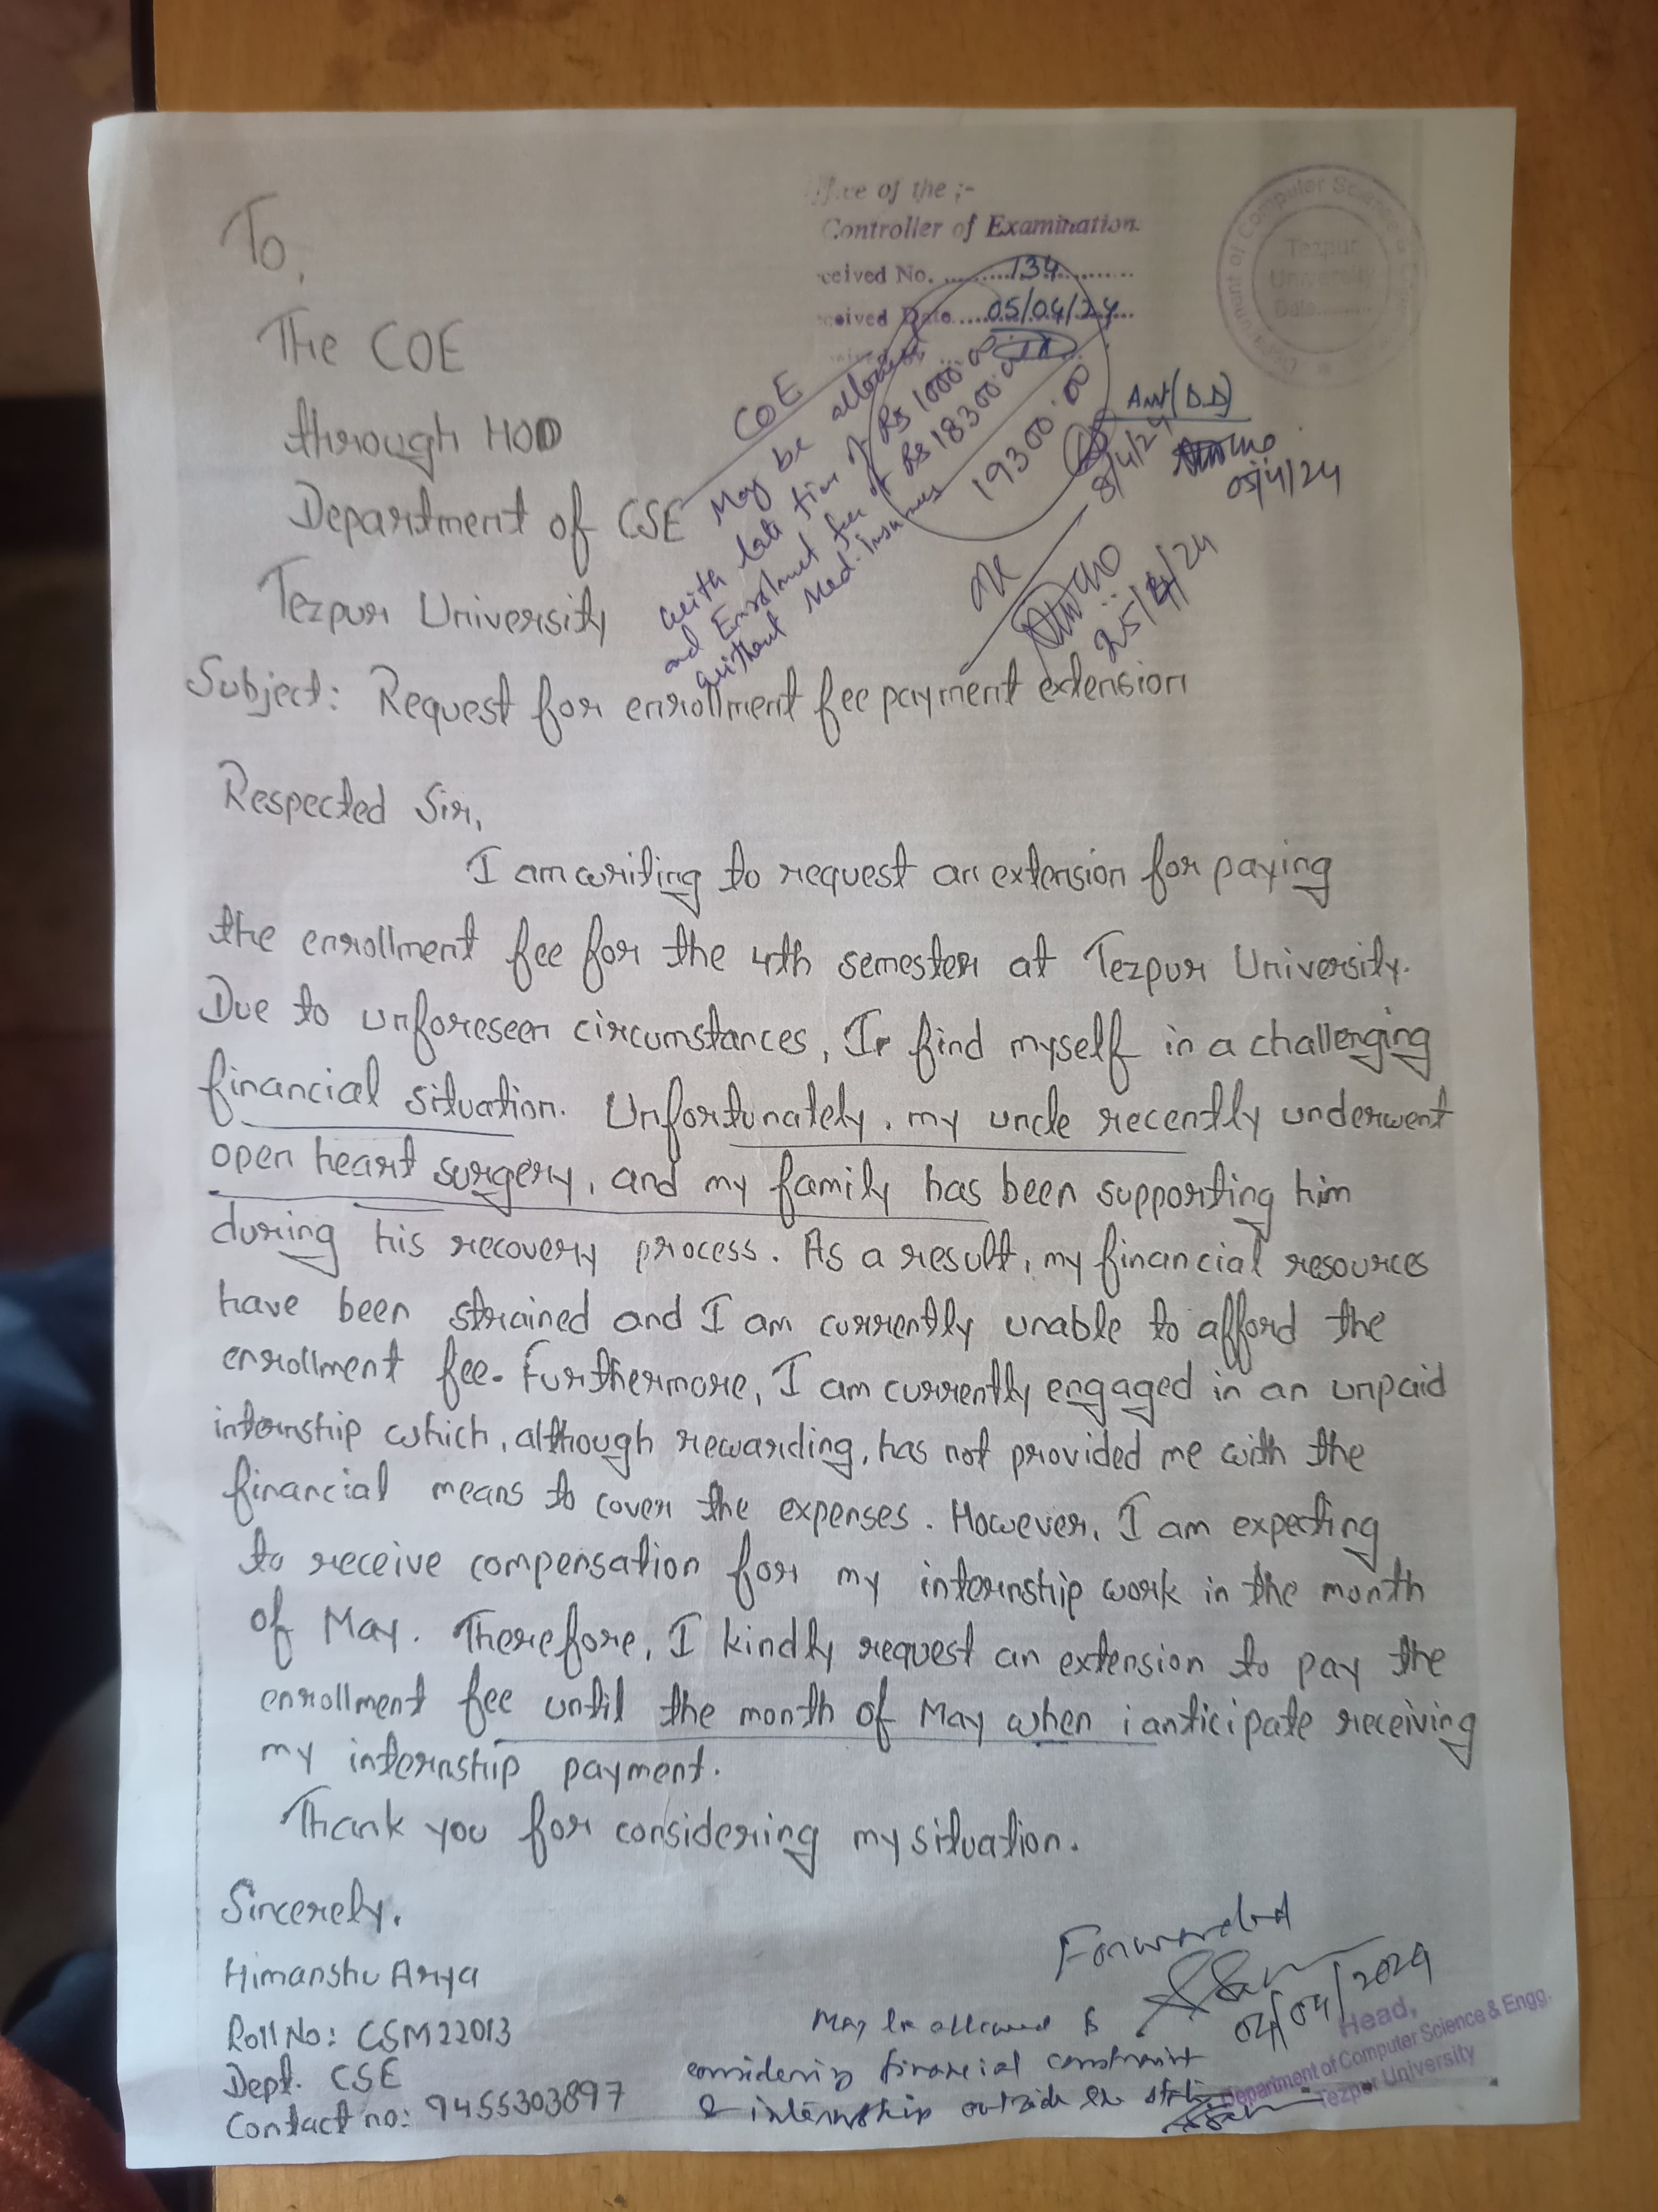 To,
The COE
through HOD
Department of CSE
Tezpur University
of the ;-
Controller of Examination.
ceived No. ..........134............
ceived Date.....05/04/24...
Department of Computer Science
Tezpur
University
Date...........
COE
May be allowed
with late fine of Rs 1000.00
and Enrolment fee of Rs 18300.00
without Med. Insurance
19300.00
8/4/24
Amt(D.D)
05/4/24
OK
25/4/24
Subject: Request for enrollment fee payment extension
Respected Sir,
I am writing to request an extension for paying
the enrollment fee for the 4th semester at Tezpur University.
Due to unforeseen circumstances, I find myself in a challenging
financial situation. Unfortunately, my uncle recently underwent
open heart surgery, and my family has been supporting him
during his recovery process. As a result, my financial resources
have been strained and I am currently unable to afford the
enrollment fee. Furthermore, I am currently engaged in an unpaid
internship which, although rewarding, has not provided me with the
financial means to cover the expenses. However, I am expecting
to receive compensation for my internship work in the month
of May. Therefore, I kindly request an extension to pay the
enrollment fee until the month of May when i anticipate receiving
my internship payment.
Thank you for considering my situation.
Sincerely,
Himanshu Arya
Roll No: CSM22013
Dept. CSE
Contact no: 9455303897
Forwarded
04/04/2024
May be allowed
considering financial constraint
& internship outside the state
Head,
Department of Computer Science & Engg.
Tezpur University